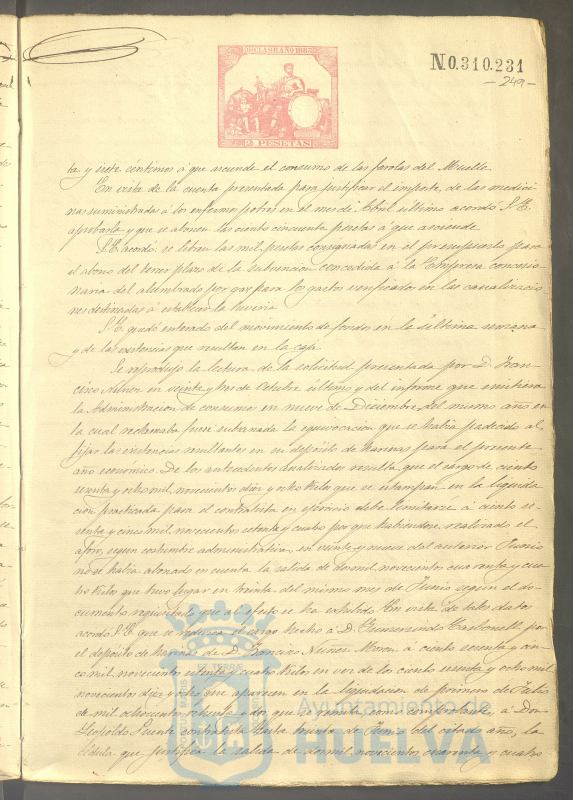 10ª CLASE AÑO 188
2 PESETAS
N0.310.231
- 249 -
ta y siete céntimos á que asciende el consumo de las farolas del Muelle.
En vista de la cuenta presentada para justificar el importe de las medici-
nas suministradas á los enfermos pobres en el mes de Abril último acordó S.E.
aprobarla y que se abonen las ciento cincuenta pesetas á que asciende.
S.E. acordó se libren las mil pesetas consignadas en el presupuesto para
el abono del tercer plazo de la subvención concedida á la Empresa concesio-
naria del alumbrado por gas para los gastos verificados en las canalizacio-
nes destinadas á establecer la
S.E. quedó enterado del movimiento de fondos en la última semana
y de las existencias que resultan en la caja.
Se reprodujo la lectura de la solicitud presentada por D. Fran-
cisco Núñez en veinte y tres de Octubre último y del informe que emitiera
la Administracion de consumos en nueve de Diciembre del mismo año en
la cual reclamaba fuese subsanada la equivocacion que se habia padecido al
fijar las existencias resultantes en su depósito de harinas para el presente
año economico. De los antecedentes resulta que el cargo de ciento
sesenta y ocho mil novecientos diez y ocho kilos que se estampan en la liquida-
cion practicada para el contratista en ejercicio debe limitarse á ciento se-
senta y cinco mil novecientos setenta y cuatro por que habiendose realizado el
aforo, segun costumbre administrativa, en veinte y nueve del anterior Junio
no se habia abonado en cuenta la salida de dos mil novecientos cuarenta y cua-
tro kilos que tuvo lugar en treinta del mismo mes de Junio segun el do-
cumento requisitado que al efecto se ha exhibido. En vista de tales datos
acordó S.E. que se reduzca el cargo hecho á D. Gumersindo Carbonell por
el depósito de harinas de D. Francisco Núñez á ciento sesenta y cin-
co mil novecientos setenta y cuatro kilos en vez de los ciento sesenta y ocho mil
novecientos diez y ocho que aparecen en la liquidacion de primero de Julio
de mil ochocientos ochenta y dos que se remita como comprobante á Don
Leopoldo contratista hasta treinta de Junio del citado año, la
cédula que justifica la salida de dos mil novecientos cuarenta y cuatro
Ayuntamiento de
HUELVA